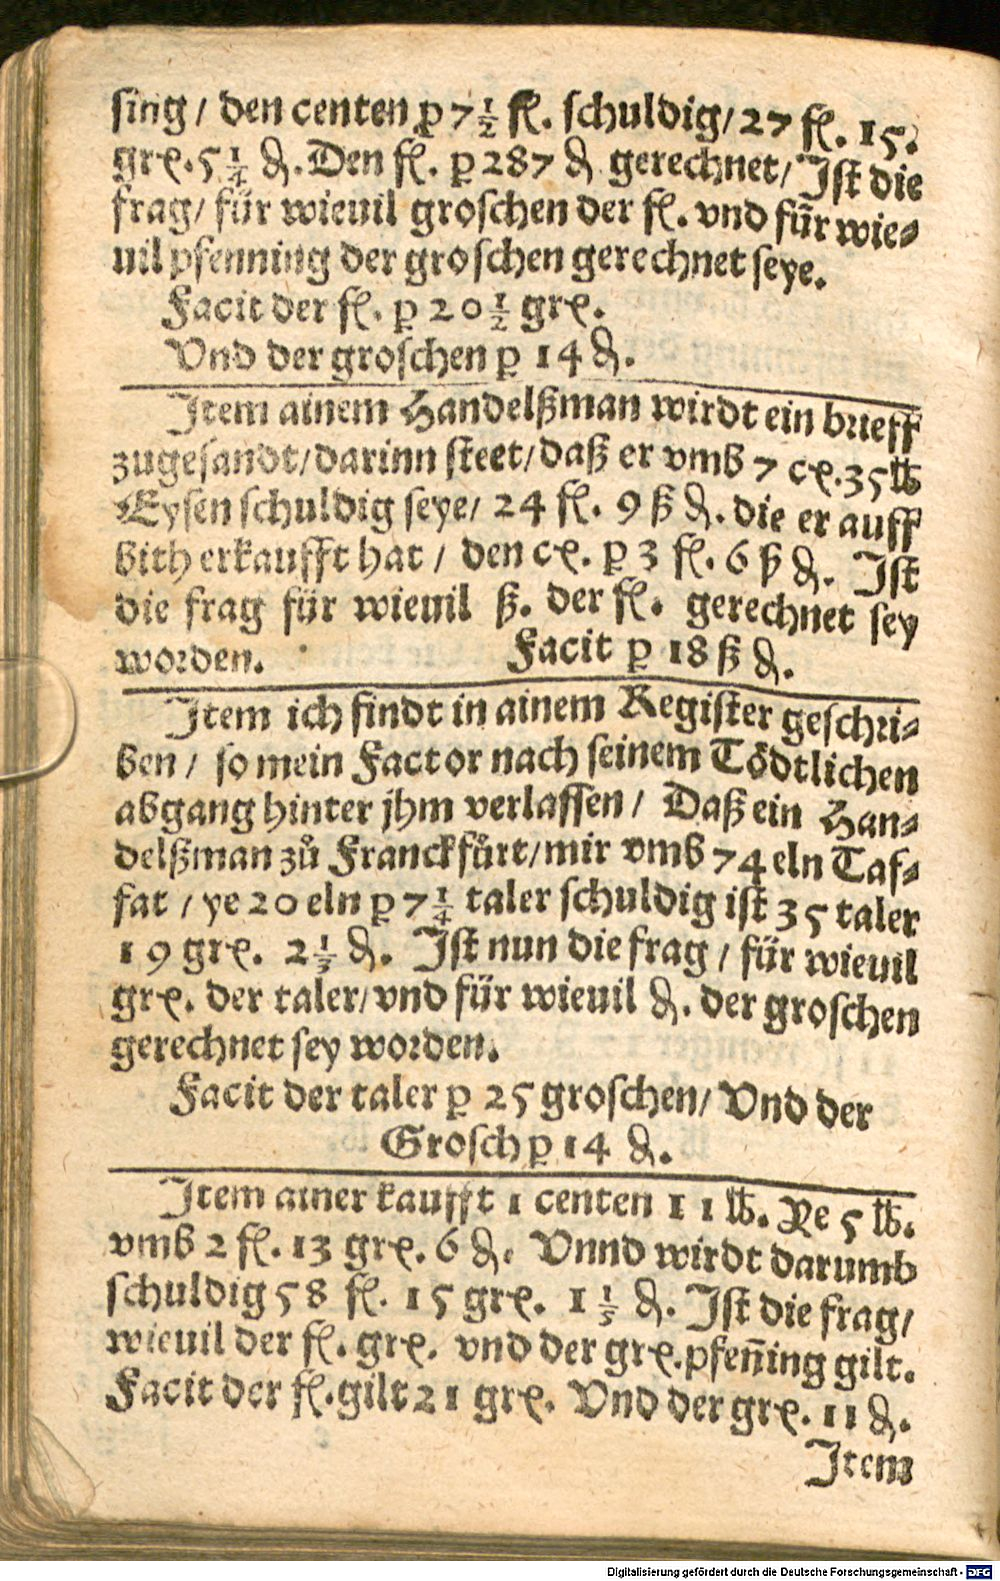 sing / den centen ꝑ 7 1/2 fl. schuldig / 27 fl. 15.
grꝭ. 5 1/4 ₰. Den fl. ꝑ 287 ₰ gerechnet / Ist die
frag / für wieuil groschen der fl. vnd für wie-
uil pfenning der groschen gerechnet seye.
Facit der fl. ꝑ 20 1/2 grꝭ.
Vnd der groschen ꝑ 14 ₰.
Item ainem Handelßman wirdt ein brieff
zugesandt / darinn steet / daß er vmb 7 cꝭ. 35 ℔
Eysen schuldig seye / 24 fl. 9 ß ₰. die er auff
bith erkaufft hat / den cꝭ. ꝑ 3 fl. 6 ß ₰. Ist
die frag für wieuil ß. der fl. gerechnet sey
worden. Facit ꝑ 18 ß ₰.
Item ich findt in ainem Register geschri-
ben / so mein Factor nach seinem Tödtlichen
abgang hinter jhm verlassen / Daß ein Han-
delßman zů Franckfůrt / mir vmb 74 eln Taf-
fat / ye 20 eln ꝑ 7 1/4 taler schuldig ist 35 taler
19 grꝭ. 2 1/3 ₰. Ist nun die frag / für wieuil
grꝭ. der taler / vnd für wieuil ₰. der groschen
gerechnet sey worden.
Facit der taler ꝑ 25 groschen / Vnd der
Grosch ꝑ 14 ₰.
Item ainer kaufft 1 centen 11 ℔. Re 5 ℔.
vmb 2 fl. 13 grꝭ. 6 ₰. Vnnd wirdt darumb
schuldig 58 fl. 15 grꝭ. 1 1/5 ₰. Ist die frag /
wieuil der fl. grꝭ. vnd der grꝭ. pfen̄ing gilt.
Facit der fl. gilt 21 grꝭ. Vnd der grꝭ. 11 ₰.
Item
Digitalisierung gefördert durch die Deutsche Forschungsgemeinschaft - DFG